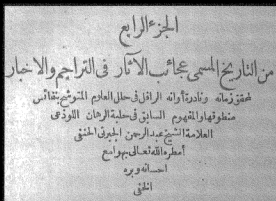 الجزء الرابع
من التاريخ المسمى عجائب الآثار فى التراجم والاخبار
لمحقق زمانه ونادرة أوانه الرافل فى حلل العلوم المتوشح بنفائس
منطوقها والمفهوم السابق فى حلبة الرهان اللوذعى
العلامة الشيخ عبد الرحمن الجبرتى الحنفى
أمطره الله تعالى بهوامع
احسانه وبره
الخفى